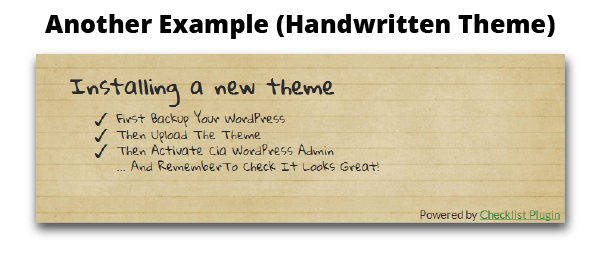 Another Example (Handwritten Theme)
Installing a new theme
✓ First Backup Your WordPress
✓ Then Upload The Theme
✓ Then Activate Cia WordPress Admin
... And RememberTo Check It Looks Great!
Powered by Checklist Plugin